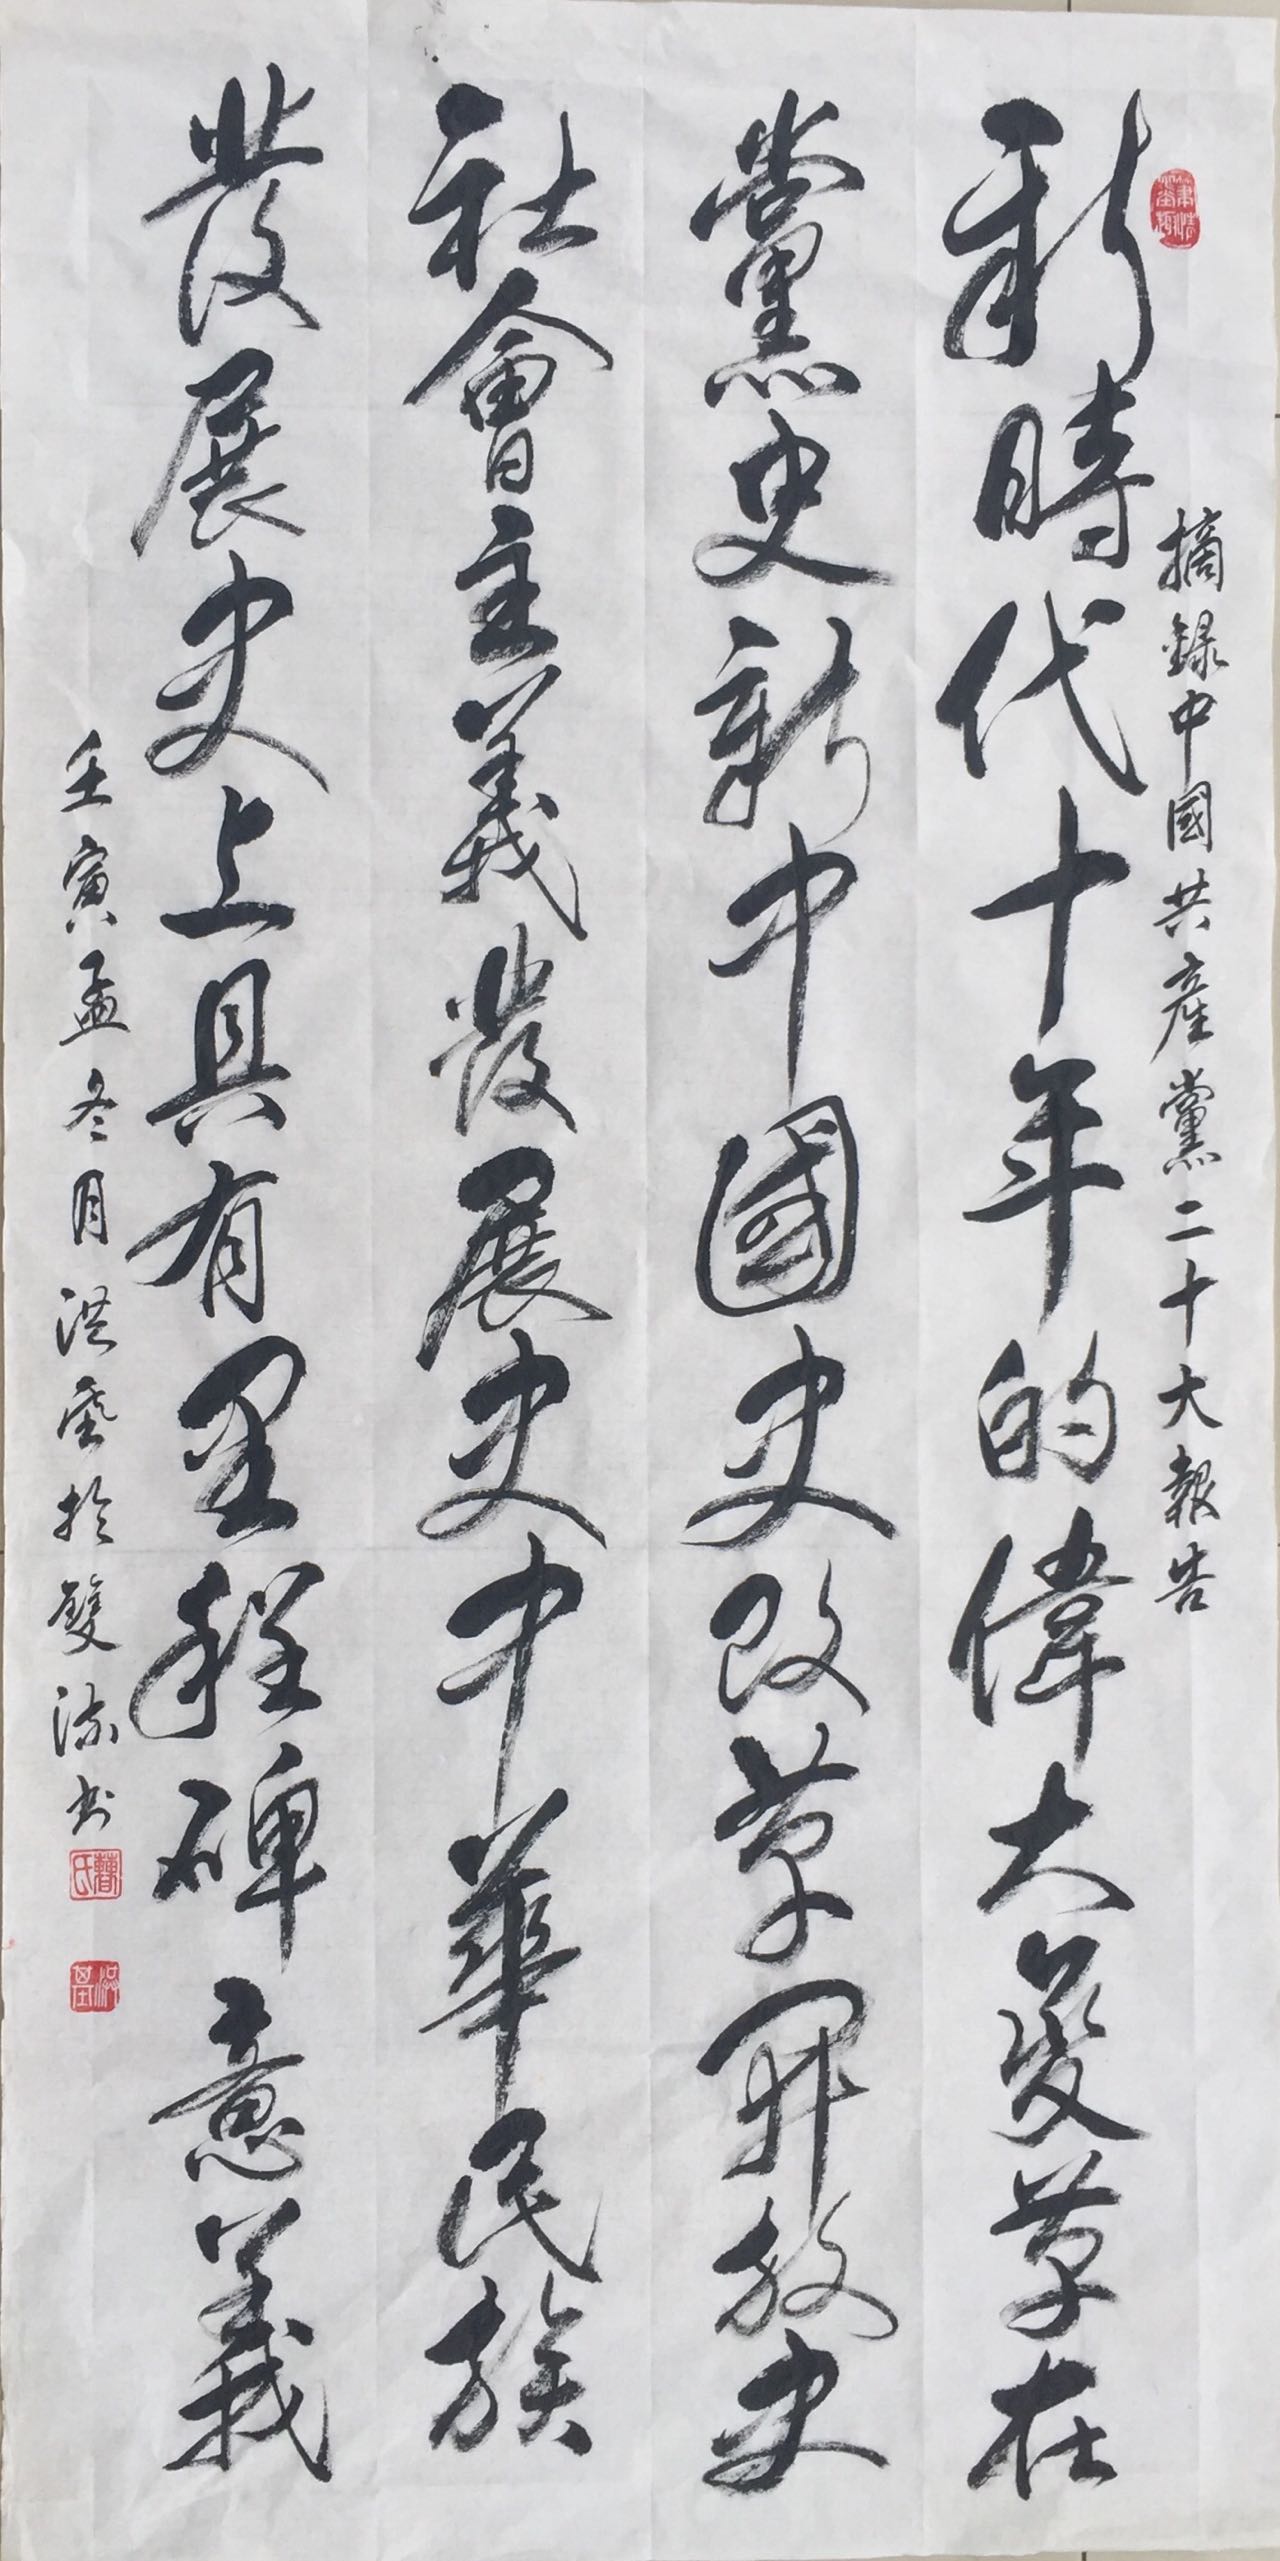 摘錄中國共產黨二十大報告
新時代十年的偉大變革在
黨史新中國史改革開放史
社會主義發展史中華民族
發展史上具有里程碑意義
壬寅孟冬月洪基於雙流书